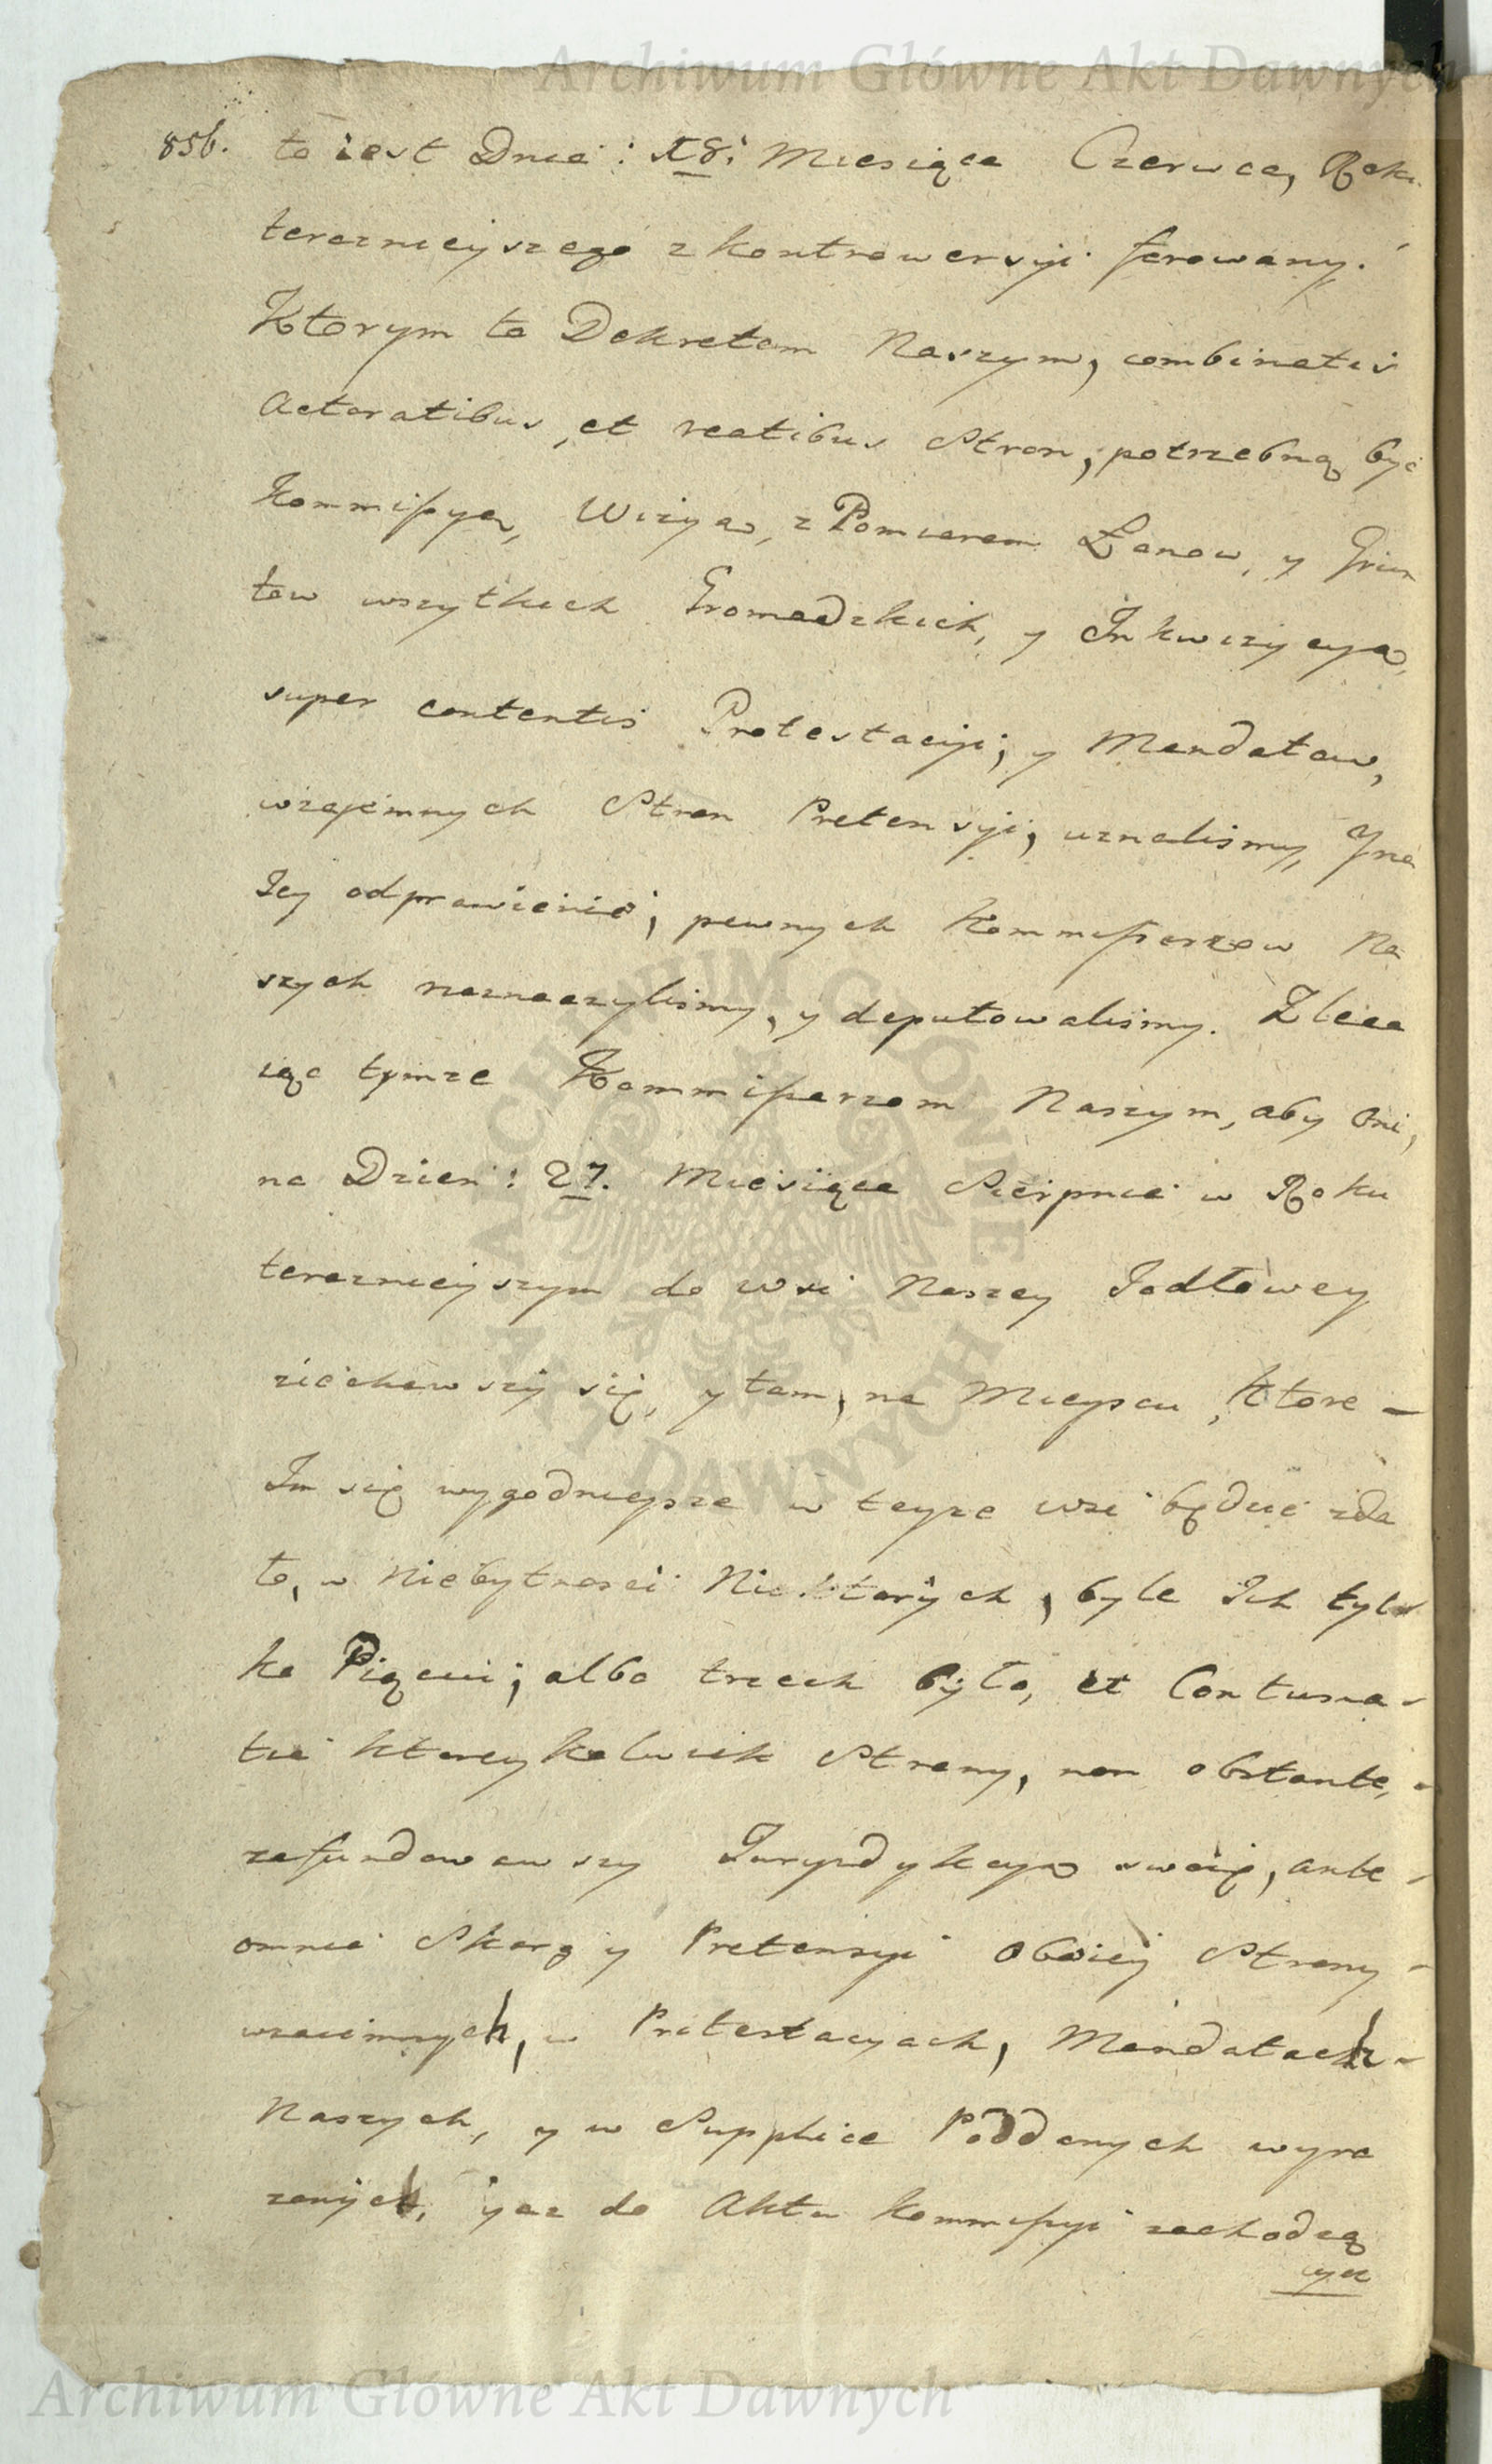 Archiwum Główne Akt Dawnych
856. to iest Dnia: 18; Miesiąca Czerwca, Roku
teraznieyszego z kontrowersyi ferowany.
Ktorym to Dekretem Naszym, combinatis
Actoratibus, et reatibus Stron, potrzebną być
Kommissyą, Wizyą, z Pomiarem Łanow, y Grun
tow wszytkich Gromadzkich, y Inkwizycyą,
super contentis Protestacyi, y Mandatow,
wzajemnych Stron Pretensyi, uznaliśmy, Y na
Iey odprawienie, pewnych Kommissarzow Na
szych naznaczyliśmy, y deputowaliśmy. Zleca
iąc tymze Kommissarzom Naszym, aby oni,
na Dzien: 27. Miesiąca Sierpnia w Roku
teraznieyszym do wsi Naszey Jodłowey
ziechawszy się, y tam, na Mieyscu, ktore –
Im się wygodnieysze w teyze wsi będzie zda
ło, w Niebytnosci Niektorych, byle Ich tyl-
ko Pięciu, albo trzech było, et Contuma-
tia ktoreykolwiek Strony, non obstante, -
zafundowawszy Juryzdykcyą swoię, ante -
omnia Skarg y Pretensyi oboiey Strony -
wzaiemnych, w Protestacyach, Mandatach -
Naszych, y w Supplice Poddanych wyra
zonych, y az do Aktu Kommissyi zachodzą
cych
ARCHIWUM GŁÓWNE AKT DAWNYCH
Archiwum Główne Akt Dawnych